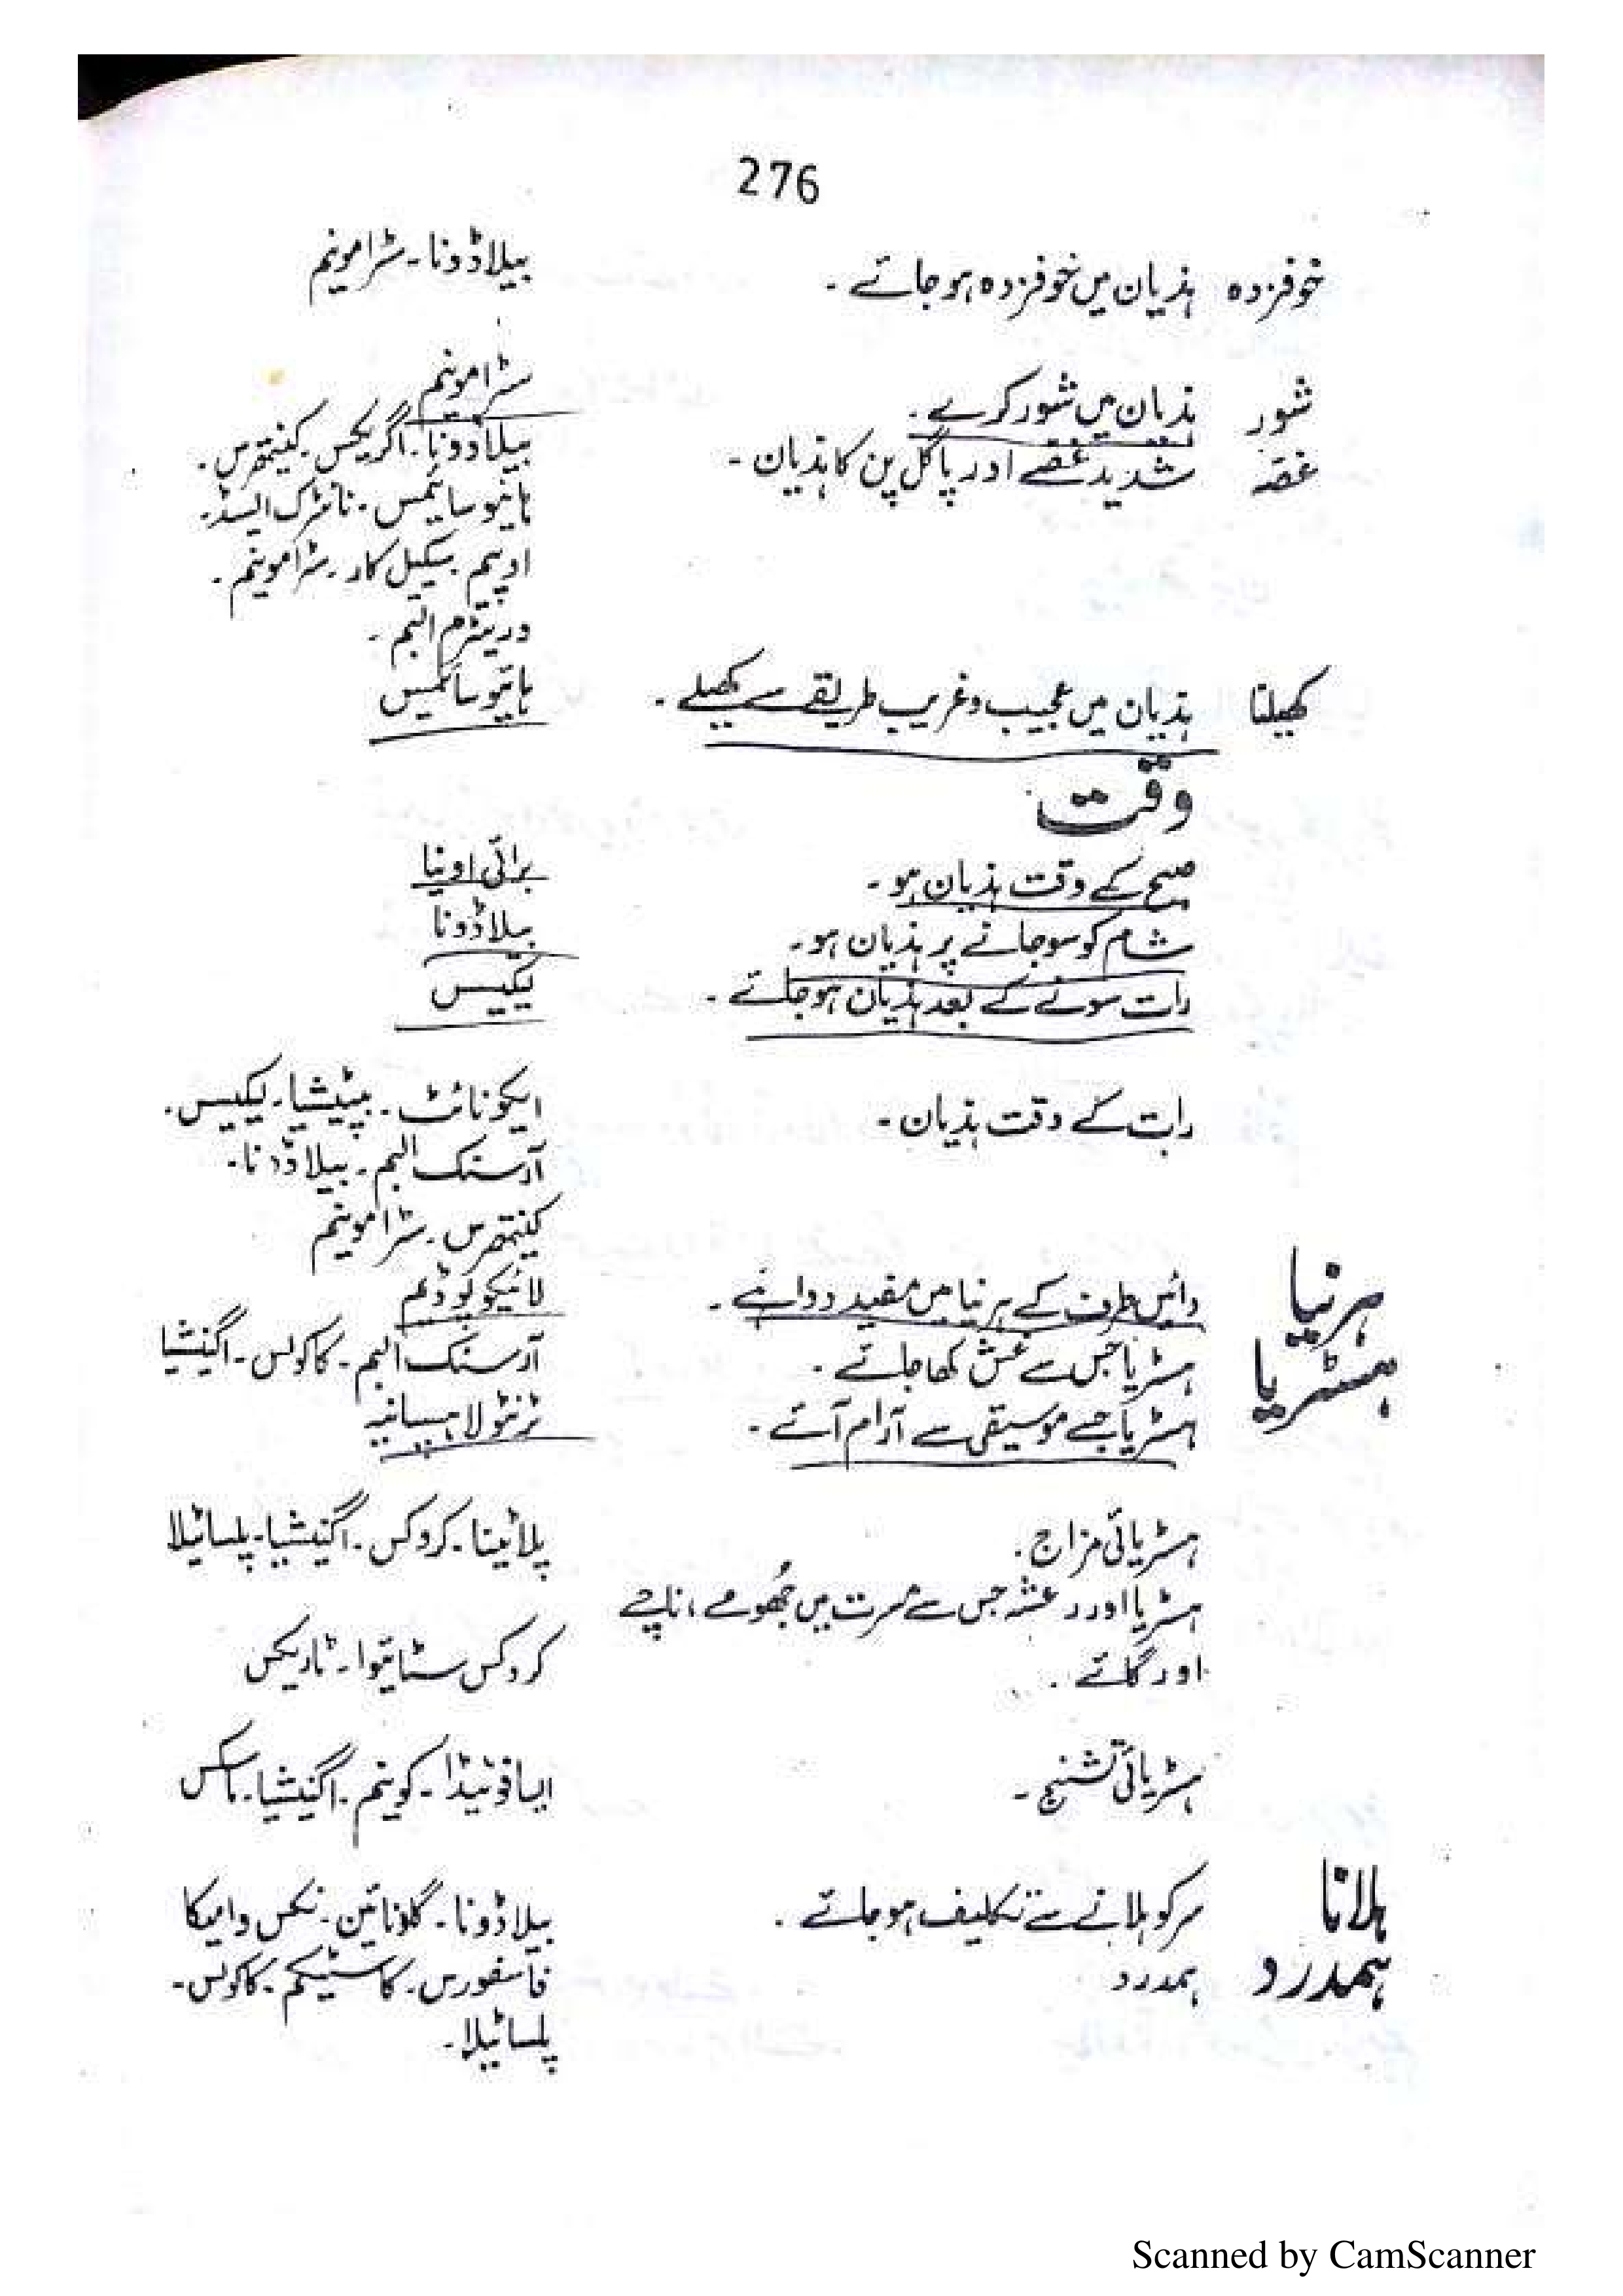 276
خوفزدہ ہذیان میں خوفزدہ ہو جائے ۔ بیلاڈونا ۔ سٹرامونیم
شور ہذیان میں شور کرے ۔ سٹرامونیم
غصہ شدید غصے اور پاگل پن کا ہذیان ۔ بیلاڈونا ۔ اگریکس ۔ کینتھرس ۔
ہائیوسائمس ۔ نائٹرک ایسڈ ۔
اوپیم ۔ سیکیل کار ۔ سٹرامونیم ۔
وریٹرم البم ۔
کھیلنا ہذیان میں عجیب و غریب طریقے سے کھیلے ۔ ہائیوسائمس
وقت
صبح کے وقت ہذیان ہو ۔ برائی اونیا
شام کو سو جانے پر ہذیان ہو ۔ بیلاڈونا
رات سونے کے بعد ہذیان ہو جائے ۔ لیکیسس
رات کے وقت ہذیان ۔ ایکونائٹ ۔ بپٹیشیا ۔ لیکیسس ۔
آرسنک البم ۔ بیلاڈونا ۔
کینتھرس ۔ سٹرامونیم
ہرنیا دائیں طرف کے ہرنیا میں مفید دوا ہے ۔ لائیکوپوڈیم
ہسٹریا ہسٹریا جس سے غش کھا جائے ۔ آرسنک البم ۔ کاکولس ۔ اگنیشیا
ہسٹریا جسے موسیقی سے آرام آئے ۔ ٹرنٹولا ہسپانیہ
ہسٹریائی مزاج ۔ پلاٹینا ۔ کروکس ۔ اگنیشیا ۔ پلساٹیلا
ہسٹریا اور رعشہ جس سے مسرت میں جھُومے ، ناچے
اور گائے ۔ کروکس سٹائیوا ۔ ٹاریکس
ہسٹریائی تشنج ۔ ایسافوئیڈا ۔ کونیم ۔ اگنیشیا ۔ ماسکس
ہلانا سر کو ہلانے سے تکلیف ہو جائے ۔ بیلاڈونا ۔ گلونائین ۔ نکس وامیکا
ہمدرد ہمدرد فاسفورس ۔ کاسٹیکم ۔ کاکولس ۔
پلساٹیلا ۔
Scanned by CamScanner